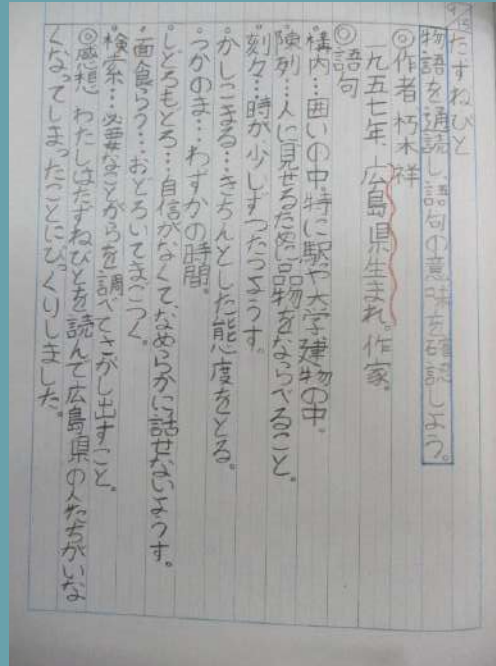 9/15
たずねびと
物語を通読し、語句の意味を確認しよう。
◎作者 朽木祥
一九五七年、広島県生まれ。作家。
◎語句
構内…囲いの中。特に駅や大学、建物の中。
陳列…人に見せるために品物をならべること。
刻々…時が少しずつたつようす。
かしこまる…きちんとした態度をとる。
つかのま…わずかの時間。
しどろもどろ…自信がなくて、なめらかに話せないようす。
面食らう…おどろいてまごつく。
検索…必要なことがらを調べてさがし出すこと。
◎感想 わたしはたずねびとを読んで広島県の人たちがいな
くなってしまったことにびっくりしました。